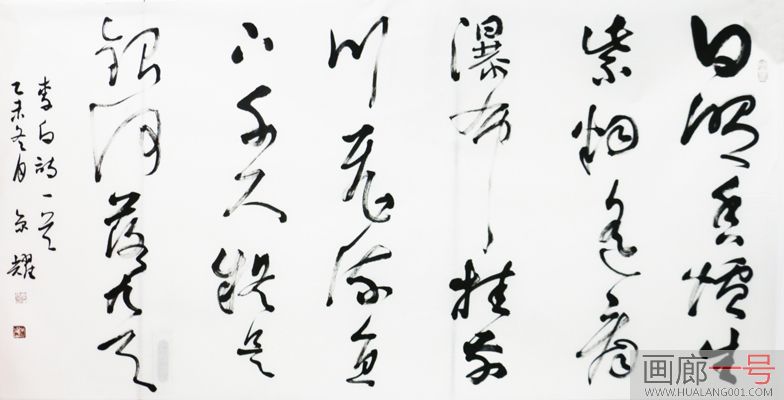 日照香爐生
紫烟遥看
瀑布挂前
川飛流直
下千尺疑是
銀河落九天
李白詩一首
乙未冬月 京耀
画廊一号
WWW.HUALANG001.COM